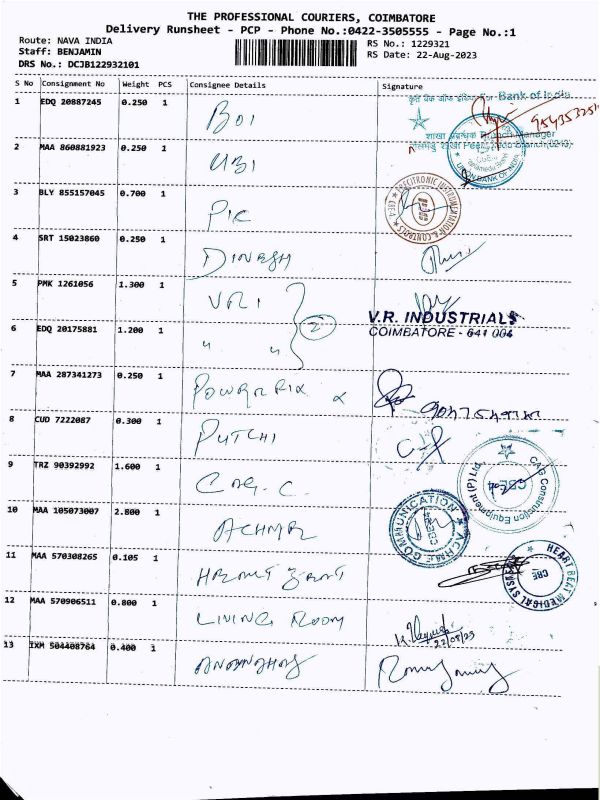 THE PROFESSIONAL COURIERS, COIMBATORE
Delivery Runsheet - PCP - Phone No.:0422-3505555 - Page No.:1
Route: NAVA INDIA
Staff: BENJAMIN
DRS No.: DCJB122932101
RS No.: 1229321
RS Date: 22-Aug-2023
S No Consignment No Weight PCS Consignee Details Signature
1 EDQ 20887245 0.250 1 BOI
For Bank of India
शाखा प्रबन्धक Branch Manager
UNION BANK OF INDIA
2 MAA 860881923 0.250 1 UBI
3 BLY 855157045 0.700 1 PIC
ELECTRONIC INSTRUMENTATION & CONTROLS
CBE-4
4 SRT 15023860 0.250 1 DINESH
5 PMK 1261056 1.300 1 VRI
2
V.R. INDUSTRIALS
COIMBATORE - 641 004
6 EDQ 20175881 1.200 1 " "
7 MAA 287341273 0.250 1
8 CUD 7222087 0.300 1 PUTCHI
9 TRZ 90392992 1.600 1 CAG. C.
CAG Construction Equipment (P) Ltd.
10 MAA 105073007 2.800 1 ACHME
ACHME COMMUNICATION
11 MAA 570308265 0.105 1
HEART BEAT MEDICAL
CBE
12 MAA 570906511 0.800 1 LIVING ROOM
22/08/23
13 IXM 504408764 0.400 1